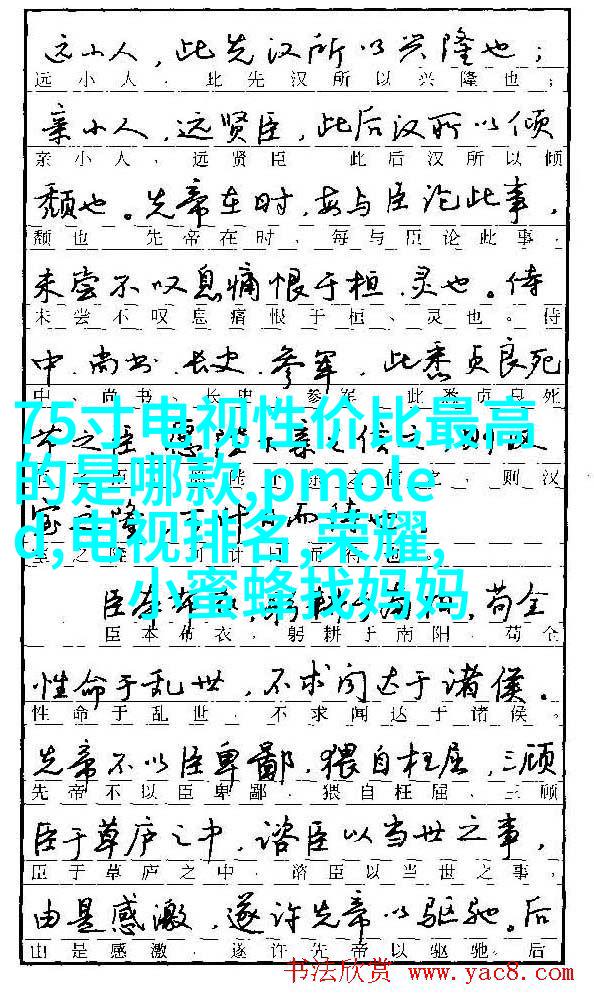 远小人，此先汉所以兴隆也；
远小人，此先汉所以兴隆也；
亲小人，远贤臣，此后汉所以倾
亲小人，远贤臣 此后汉所以倾
颓也。先帝在时，每与臣论此事，
颓也 先帝在时，每与臣论此事，
未尝不叹息痛恨于桓、灵也。侍
未尝不叹息痛恨于桓、灵也。侍
中、尚书、长史、参军，此悉贞良死
中、尚书、长史、参军，此悉贞良死
75寸电视性价比最高
的是哪款,pmole
d,电视排名,荣耀,
小蜜蜂找妈妈
臣本布衣，躬耕于南阳，苟全
臣本布衣，躬耕于南阳，苟全
性命于乱世，不求闻达于诸侯。
性命于乱世，不求闻达于诸侯。
先帝不以臣卑鄙，猥自枉屈，三顾
先帝不以臣卑鄙，猥自枉屈、三顾
臣于草庐之中，谘臣以当世之事，
臣于草庐之中，谘臣以当世之事，
由是感激，遂许先帝以驱驰。后
由是感激，遂许先帝以驱驰。后
书法欣赏 www.yac8.com